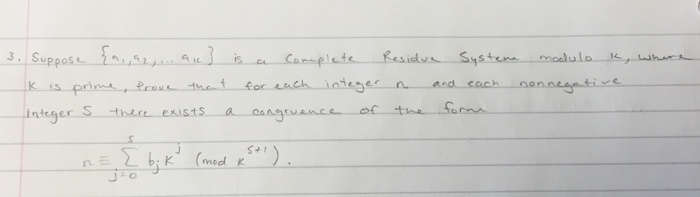 3. Suppose {a₁, a₂, ... aₖ} is a Complete Residue System modulo k, where
K is prime, Prove that for each integer n and each nonnegative
integer S there exists a congruence of the form
n ≡ Σ_{j=0}^{s} b_j k^j (mod k^{s+1}).